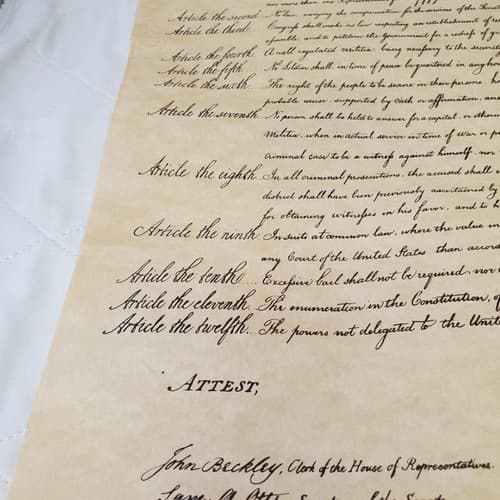 Article the second ... No law, varying the compensation for the services of the
Article the third ... Congress shall make no law respecting an establishment of
assemble, and to petition the Government for a redress of
Article the fourth ... A well regulated militia, being necessary to the
Article the fifth ... No Soldier shall, in time of peace be quartered in any
Article the sixth ... The right of the people to be secure in their persons,
probable cause, supported by oath or affirmation, and
Article the seventh ... No person shall be held to answer for a capital, or
Militia, when in actual service in time of War or
criminal case to be a witness against himself, nor
Article the eighth ... In all criminal prosecutions, the accused shall
district shall have been previously ascertained by
for obtaining witnesses in his favor, and to
Article the ninth ... In suits at common law, where the value in
any Court of the United States than
Article the tenth ... Excessive bail shall not be required, nor
Article the eleventh ... The enumeration in the Constitution, of
Article the twelfth ... The powers not delegated to the
ATTEST,
John Beckley, Clerk of the House of Representatives.